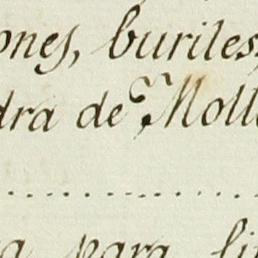 ones, buriles,
dra de Moll
a para li